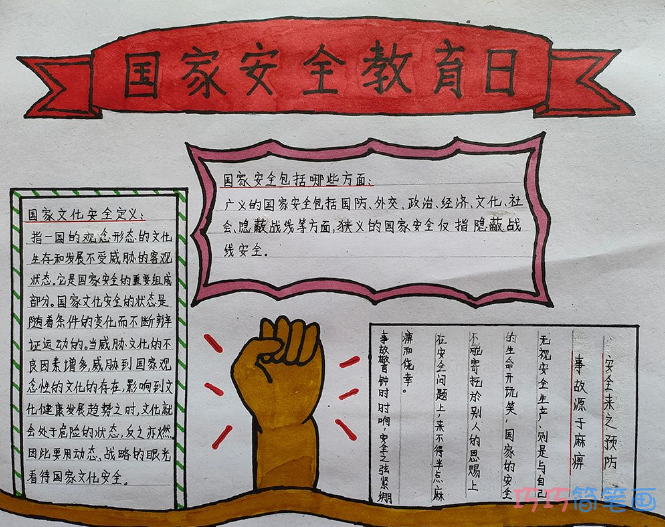 国家安全教育日
国家安全包括哪些方面:
广义的国家安全包括国防、外交、政治、经济、文化、社
会、隐蔽战线等方面,狭义的国家安全仅指隐蔽战
线安全。
国家文化安全定义:
指一国的观念形态的文化
生存和发展不受威胁的客观
状态。它是国家安全的重要组成
部分。国家文化安全的状态是
随着条件的变化而不断辩
证运动的。当威胁文化的不
良因素增多,威胁到国家观
念性的文化的存在,影响到文
化健康发展趋势之时,文化就
会处于危险的状态,反之亦然。
因此要用动态、战略的眼光
看待国家文化安全。
安全来之预防
事故源于麻痹
无视安全生产,则是与自己
的生命开玩笑,国家的安全
不能寄托於别人的恩赐上
在安全问题上,来不得半点麻
痹和侥幸。
事故警钟时时响,安全之弦紧绷
巧巧简笔画